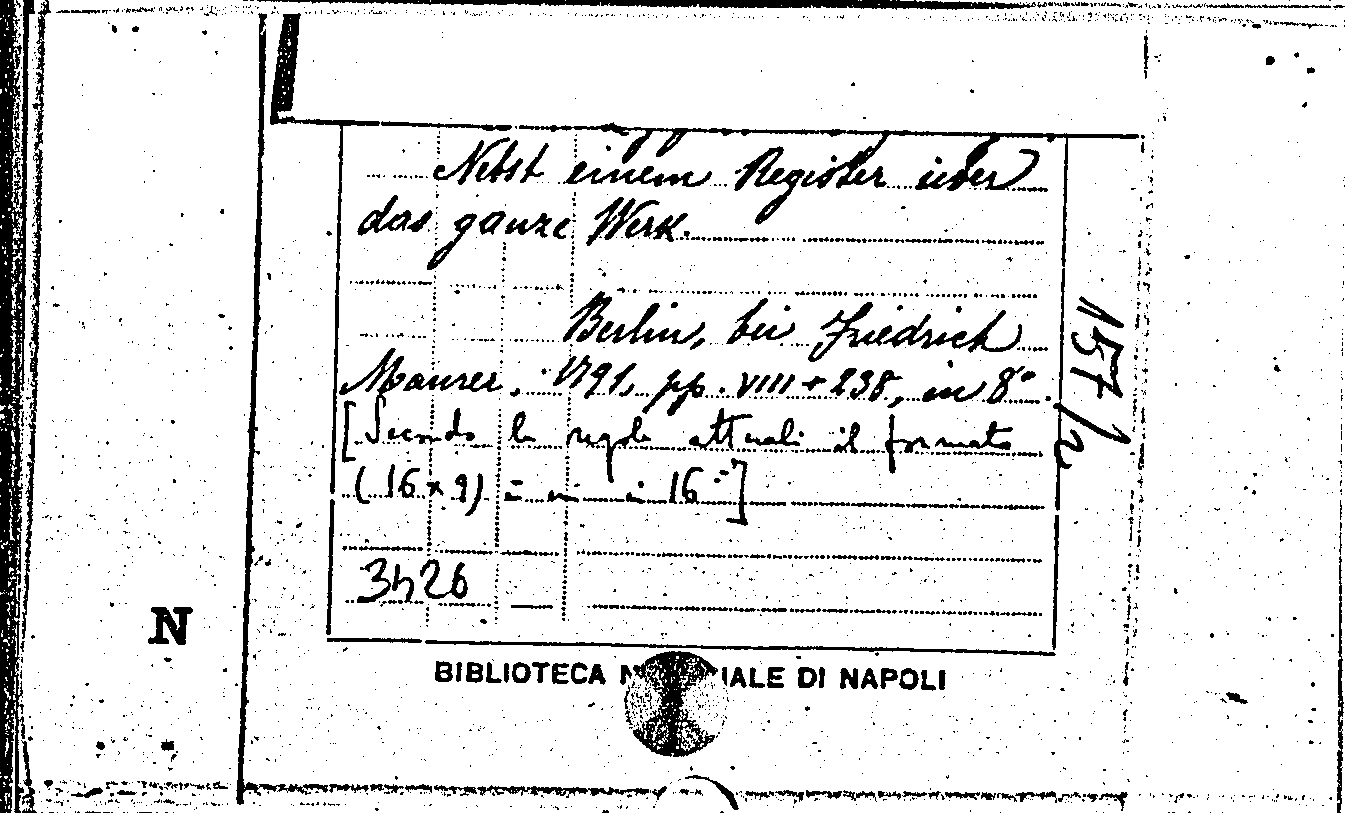 Nebst einem Register über
das ganze Werk.
Berlin, bei Friedrich
Maurer, 1791, pp. VIII + 238, in 8°.
[Secondo le regole attuali il formato
(16 × 9) è in 16°]
3426
157/2
N
BIBLIOTECA N IALE DI NAPOLI